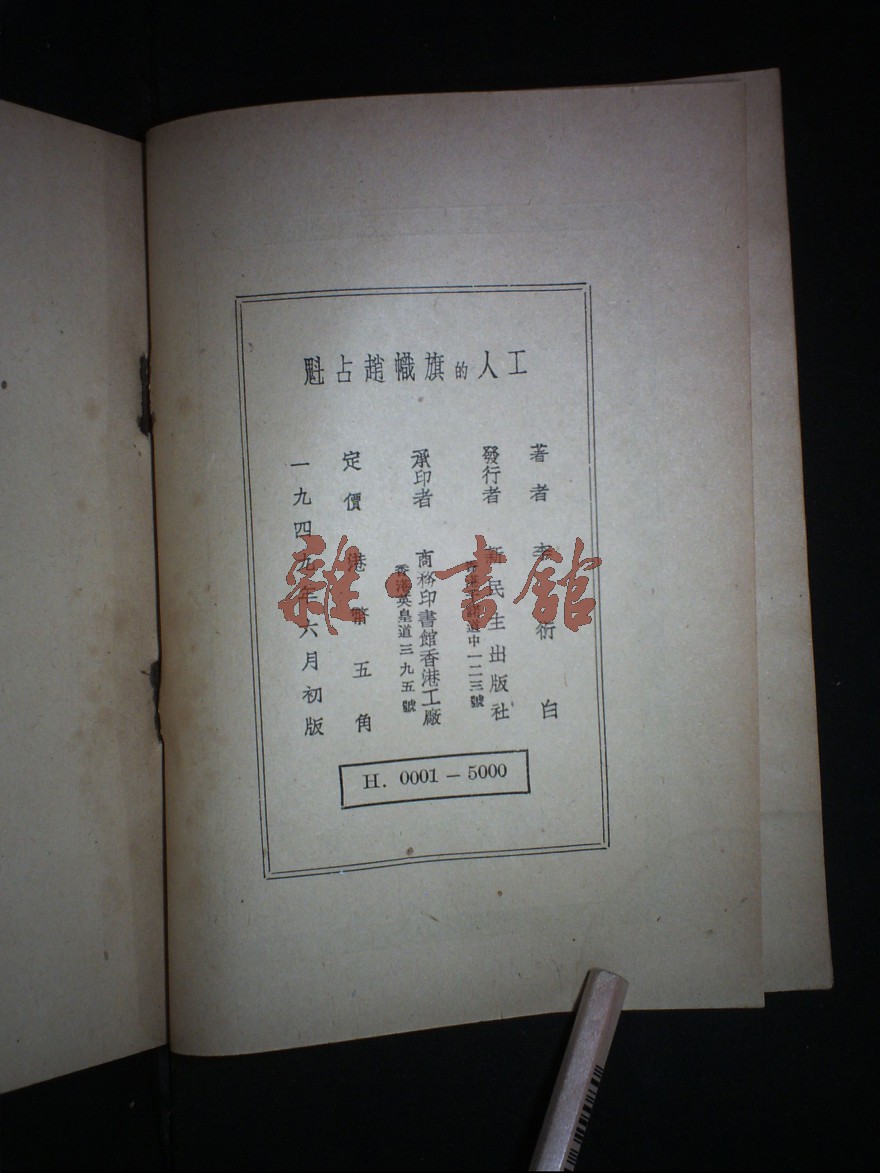 工人的旗幟趙占魁
著者 李衍白
發行者 新民生出版社
香港干諾道中一二三號
承印者 商務印書館香港工廠
香港英皇道三九五號
定價港幣五角
一九四九年六月初版
H. 0001 — 5000
雜·書館